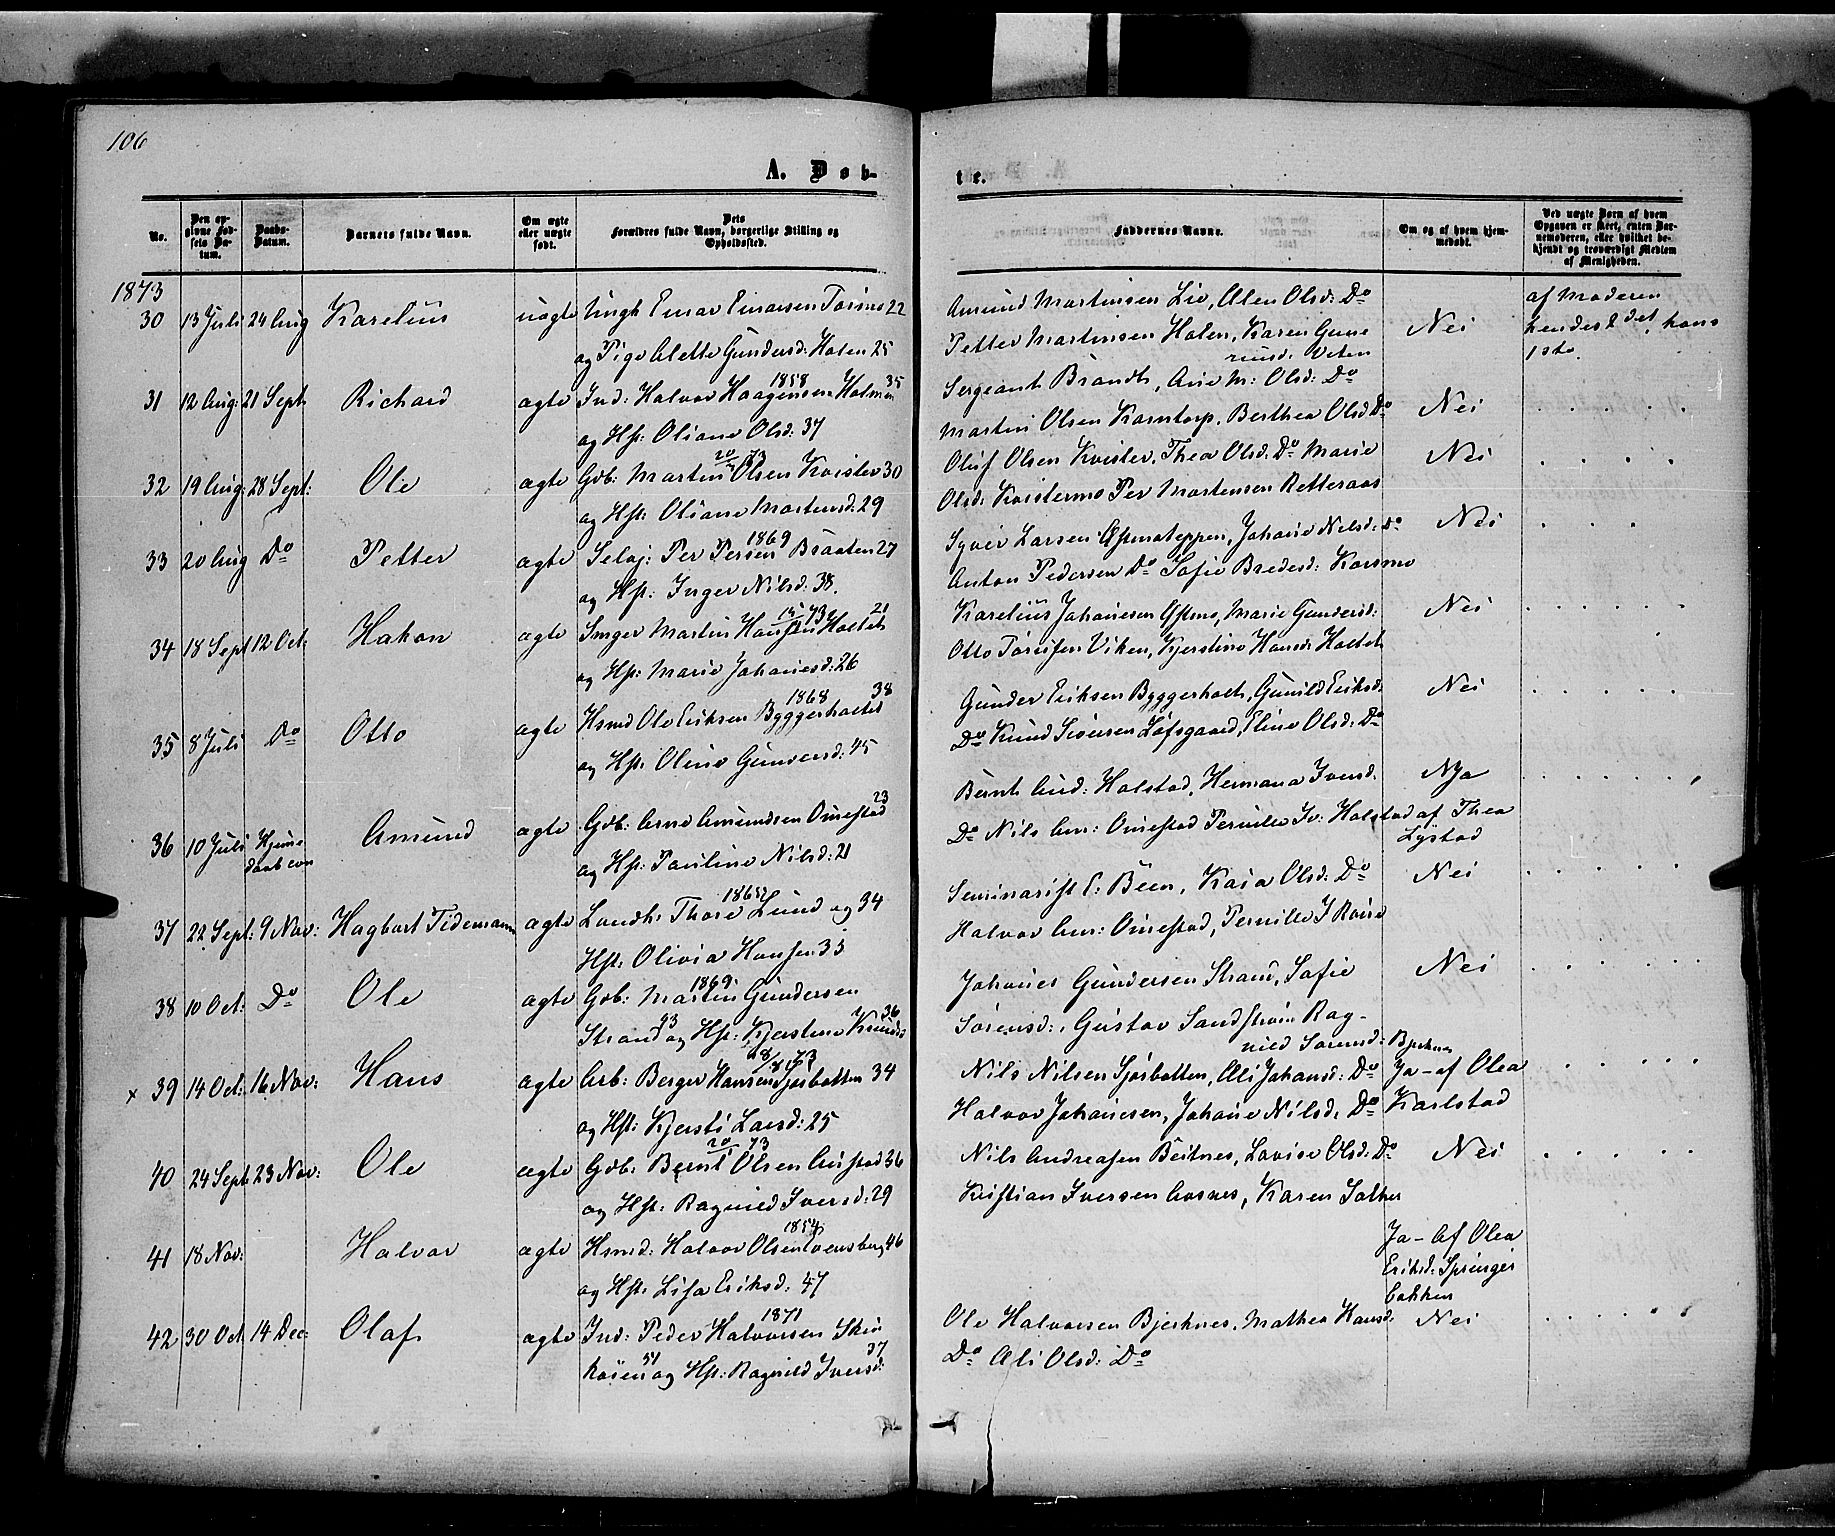 106
A. Døb-
te.
No.
Den op-
givne Fød-
sels Da-
tum.
Daabs-
Datum.
Barnets fulde Navn.
Om ægte
eller uægte
født.
Dets
Forældres fulde Navn, borgerlige Stilling og
Opholdssted.
Faddernes Navne.
Om og af hvem hjem-
medøbt.
Ved uægte Børn af hvem
Opgaven er skeet, enten Bar-
nemoderen, eller hvilket be-
kjendt og troværdigt Medlem
af Menigheden.
1873
30 13 Juli 24 Aug Karelius uægte Ungk Einar Einarsen 22
og Pige Alette Gundersd: Holen 25
Amund Martinsen Lie, Olsd: Do
Petter Martinsen Holen, Karen Gune
Nei
af Moderen
hendes 2det, hans
1ste.
31 12 Aug: 21 Sept Richard ægte Ind: Halvor Haagensen Holmen 35
1858
og Hst: Oliane Olsd: 37
Sergeant Brandt, Ane M: Olsd: Do
Martin Olsen Korntorp, Berthea Olsd Do
Nei
32 19 Aug: 28 Sept: Ole ægte Gdb: Martin Olsen Kvister 30
og Hst: Oliane Martensd: 29
Oluf Olsen Kvister, Thea Olsd: Do Marie
Olsd: Kvistermo Per Mortensen Retteraas
Nei
33 20 Aug Do Petter ægte Selvej: Per Persen Braaten 27
1869
og Hst: Inger Nilsd: 38.
Syver Larsen, Johane Nilsd: Do
Anton Pedersen Do Sofie Bredesd: Korsmo
Nei
34 18 Sept 12 Oct: Hakon ægte Martin Hansen Holtet 21
og Hst: Marie Johanesd: 26
Karelius Johanesen, Marie Gundersd:
Otto Viken, Kjerstine Hansd: Holtet
Nei
35 8 Juli Do Otto ægte Hsmd Ole Eriksen Byggerholtet 38
1868
og Hst: Oline Gundersd: 45
Gunder Eriksen Byggerholt, Gunild Eriksd:
Do Knud Siversen Løfsgaard, Eline Olsd: Do
Nei
36 10 Juli Hjemme
daab con
Amund ægte Gdb: Arne Amundsen Omestad 23
og Hst: Pauline Nilsd: 21
Bernt And: Halstad, Hermana Iversd.
Do Nils Am: Omestad Pernille Iv: Halstad
Nja
af Thea
Lystad
37 22 Sept: 9 Nov: Hagbart Tidemann ægte Landh: Thore Lund og 34
1865
Hst: Olivia Hansen 35
Seminarist E: Been, Kaia Olsd: Do
Halvor Am: Omestad, Pernille I
Nei
38 10 Oct: Do Ole ægte Gdb: Martin Gundersen
1869
Strand 43 og Hst: Kjerstine Knudsd 36
Johanes Gundersen Strand, Sofie
Sørensd:, Gustav Sandstrøm Rag-
nild Sørensd: Bjerknes
Nei
x 39 14 Oct: 16 Nov: Hans ægte Arb: Berger Hansen Sjørbotten 34
og Hst: Kjersti Larsd: 25
Nils Nilsen Sjørbotten, Oli Johansd: Do
Halvor Johanesen, Johane Nilsd: Do
Ja - af Olea
Karlstad
40 24 Sept 23 Nov: Ole ægte Gdb: Bernt Olsen Austad 36
og Hst: Ragnild Iversd: 29
Nils Andreasen Beitnes, Lovise Olsd: Do
Kristian Iversen Aosnes, Karen Sather
Nei
41 18 Nov: Halvor ægte Hsmd: Halvor Olsen Svensberg 46
1854
og Hst: Lisa Eriksd: 47
Ja - Af Olea
Eriksd: Springer
bakken
42 30 Oct 14 Dec: Olaf ægte Ind: Peder Halvorsen Skin
1871
51 og Hst: Ragnild Iversd: 37
Ole Halvorsen Bjerknes, Mathea Hansd:
Do Oli Olsd: Do
Nei